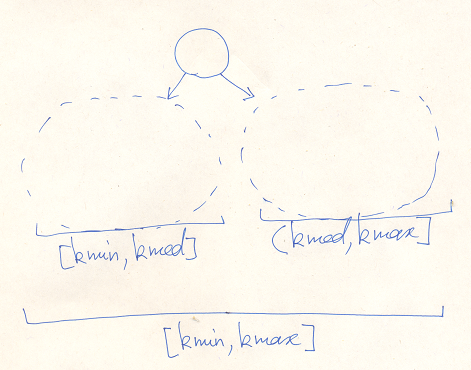 [kmin, kmed] (kmed, kmax]
[kmin, kmax]